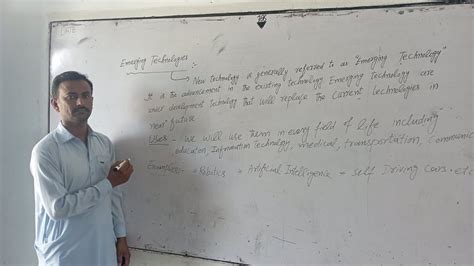 Emerging Technologies
New technology is generally referred to as "Emerging Technology"
It is the advancement in the existing technology Emerging Technology are
under development technology that will replace the current technologies in
near future
Uses:- We will use them in every field of life including
education, Information Technology, medical, transportation, communic
Examples:- • Robotics • Artificial Intelligence • Self Driving Cars. etc